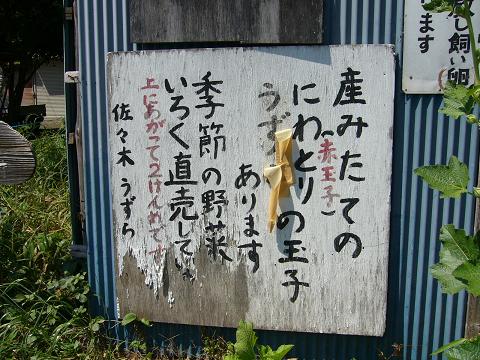 し飼い卵
ます
産みたての
にわとりの玉子
(赤玉子)
うず
あります
季節の野菜
いろ〱直売してい
上にあがって2けんめです
佐々木うずら